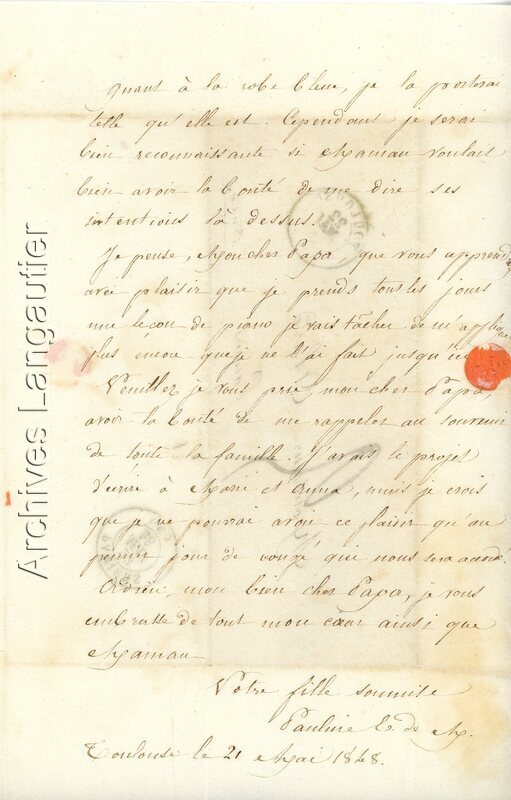 Quant à la robe bleue, je la porterai
telle qu'elle est. Cependant je serai
bien reconnaissante si Maman voulait
bien avoir la bonté de me dire ses
intentions là dessus.
Je pense, Mon cher Papa, que vous apprendrez
avec plaisir que je prends tous les jours
une leçon de piano je vais tâcher de m'appliquer
plus encore que je ne l'ai fait jusqu'ici
Veuillez je vous prie, mon cher Papa,
avoir la bonté de me rappeler au souvenir
de toute la famille. J'avais le projet
d'écrire à Marie et Anna, mais je crois
que je ne pourrai avoir ce plaisir qu'au
premier jour de congé qui nous sera accordé.
Adieu, mon bien cher Papa, je vous
embrasse de tout mon cœur ainsi que
Maman
Votre fille soumise
Pauline E. de M.
Toulouse le 21 Mai 1848.
Archives Langautier